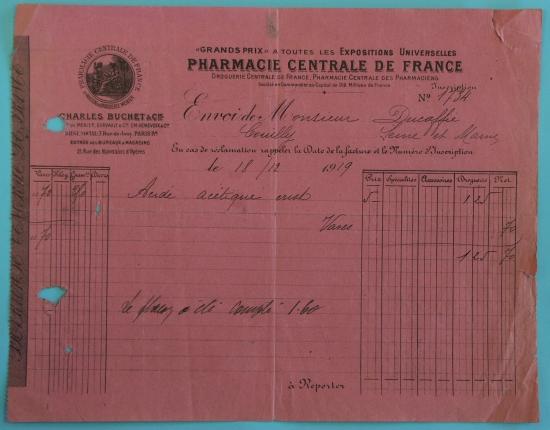 «GRANDS PRIX» A TOUTES LES EXPOSITIONS UNIVERSELLES
PHARMACIE CENTRALE DE FRANCE
DROGUERIE CENTRALE DE FRANCE, PHARMACIE CENTRALE DES PHARMACIENS
Société en Commandite au Capital de Millions de Francs
Inscription
No 1784
PHARMACIE CENTRALE DE FRANCE
CHARLES BUCHET & Cie
PARIS
ENTRÉE DES BUREAUX & MAGASINS
21, Rue des Nonnains d'Hyères
Envoi de Monsieur
Couilly Seine et Marne
En cas de réclamation rappeler la Date de la facture et le Numéro d'Inscription
le 18/12 1919
Prix Spécialités Accessoires Drogueries Net
70 Acide acétique crist 5 125
Vases 70
70 125 70
Le flacon à clé compté 1.60
à Reporter